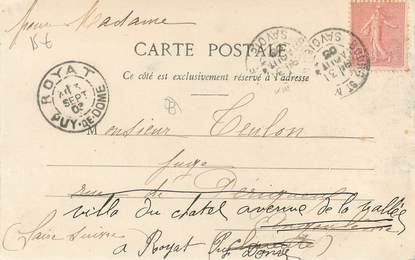 pour Madame
15 €
CARTE POSTALE
Ce côté est exclusivement réservé à l'adresse
ROYAT
SEPT
PUY-DE-DOME
SAVOIE
SAVOIE
Monsieur Teulon
Juge
rue de Périgueux
villa du chatel avenue de la vallée
Angoulême
(faire suivre)
à Royat Puy de Dôme